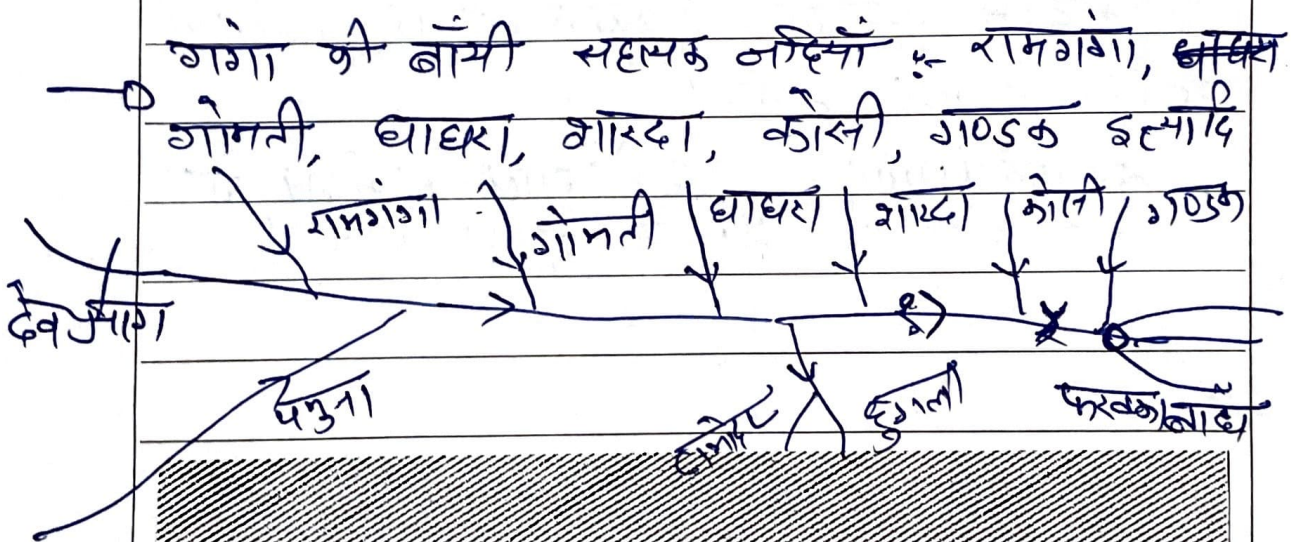 गंगा की बाँयी सहायक नदियाँ :- रामगंगा,
गोमती, घाघरा, शारदा, कोसी, गण्डक इत्यादि
रामगंगा गोमती घाघरा शारदा कोसी गण्डक
देवप्रयाग
यमुना दामोदर हुगली फरक्का बांध